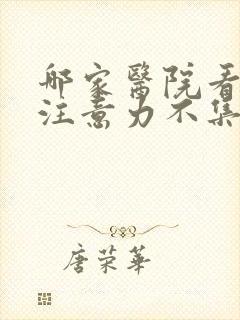 哪家醫院看
注意力不集
唐荣華